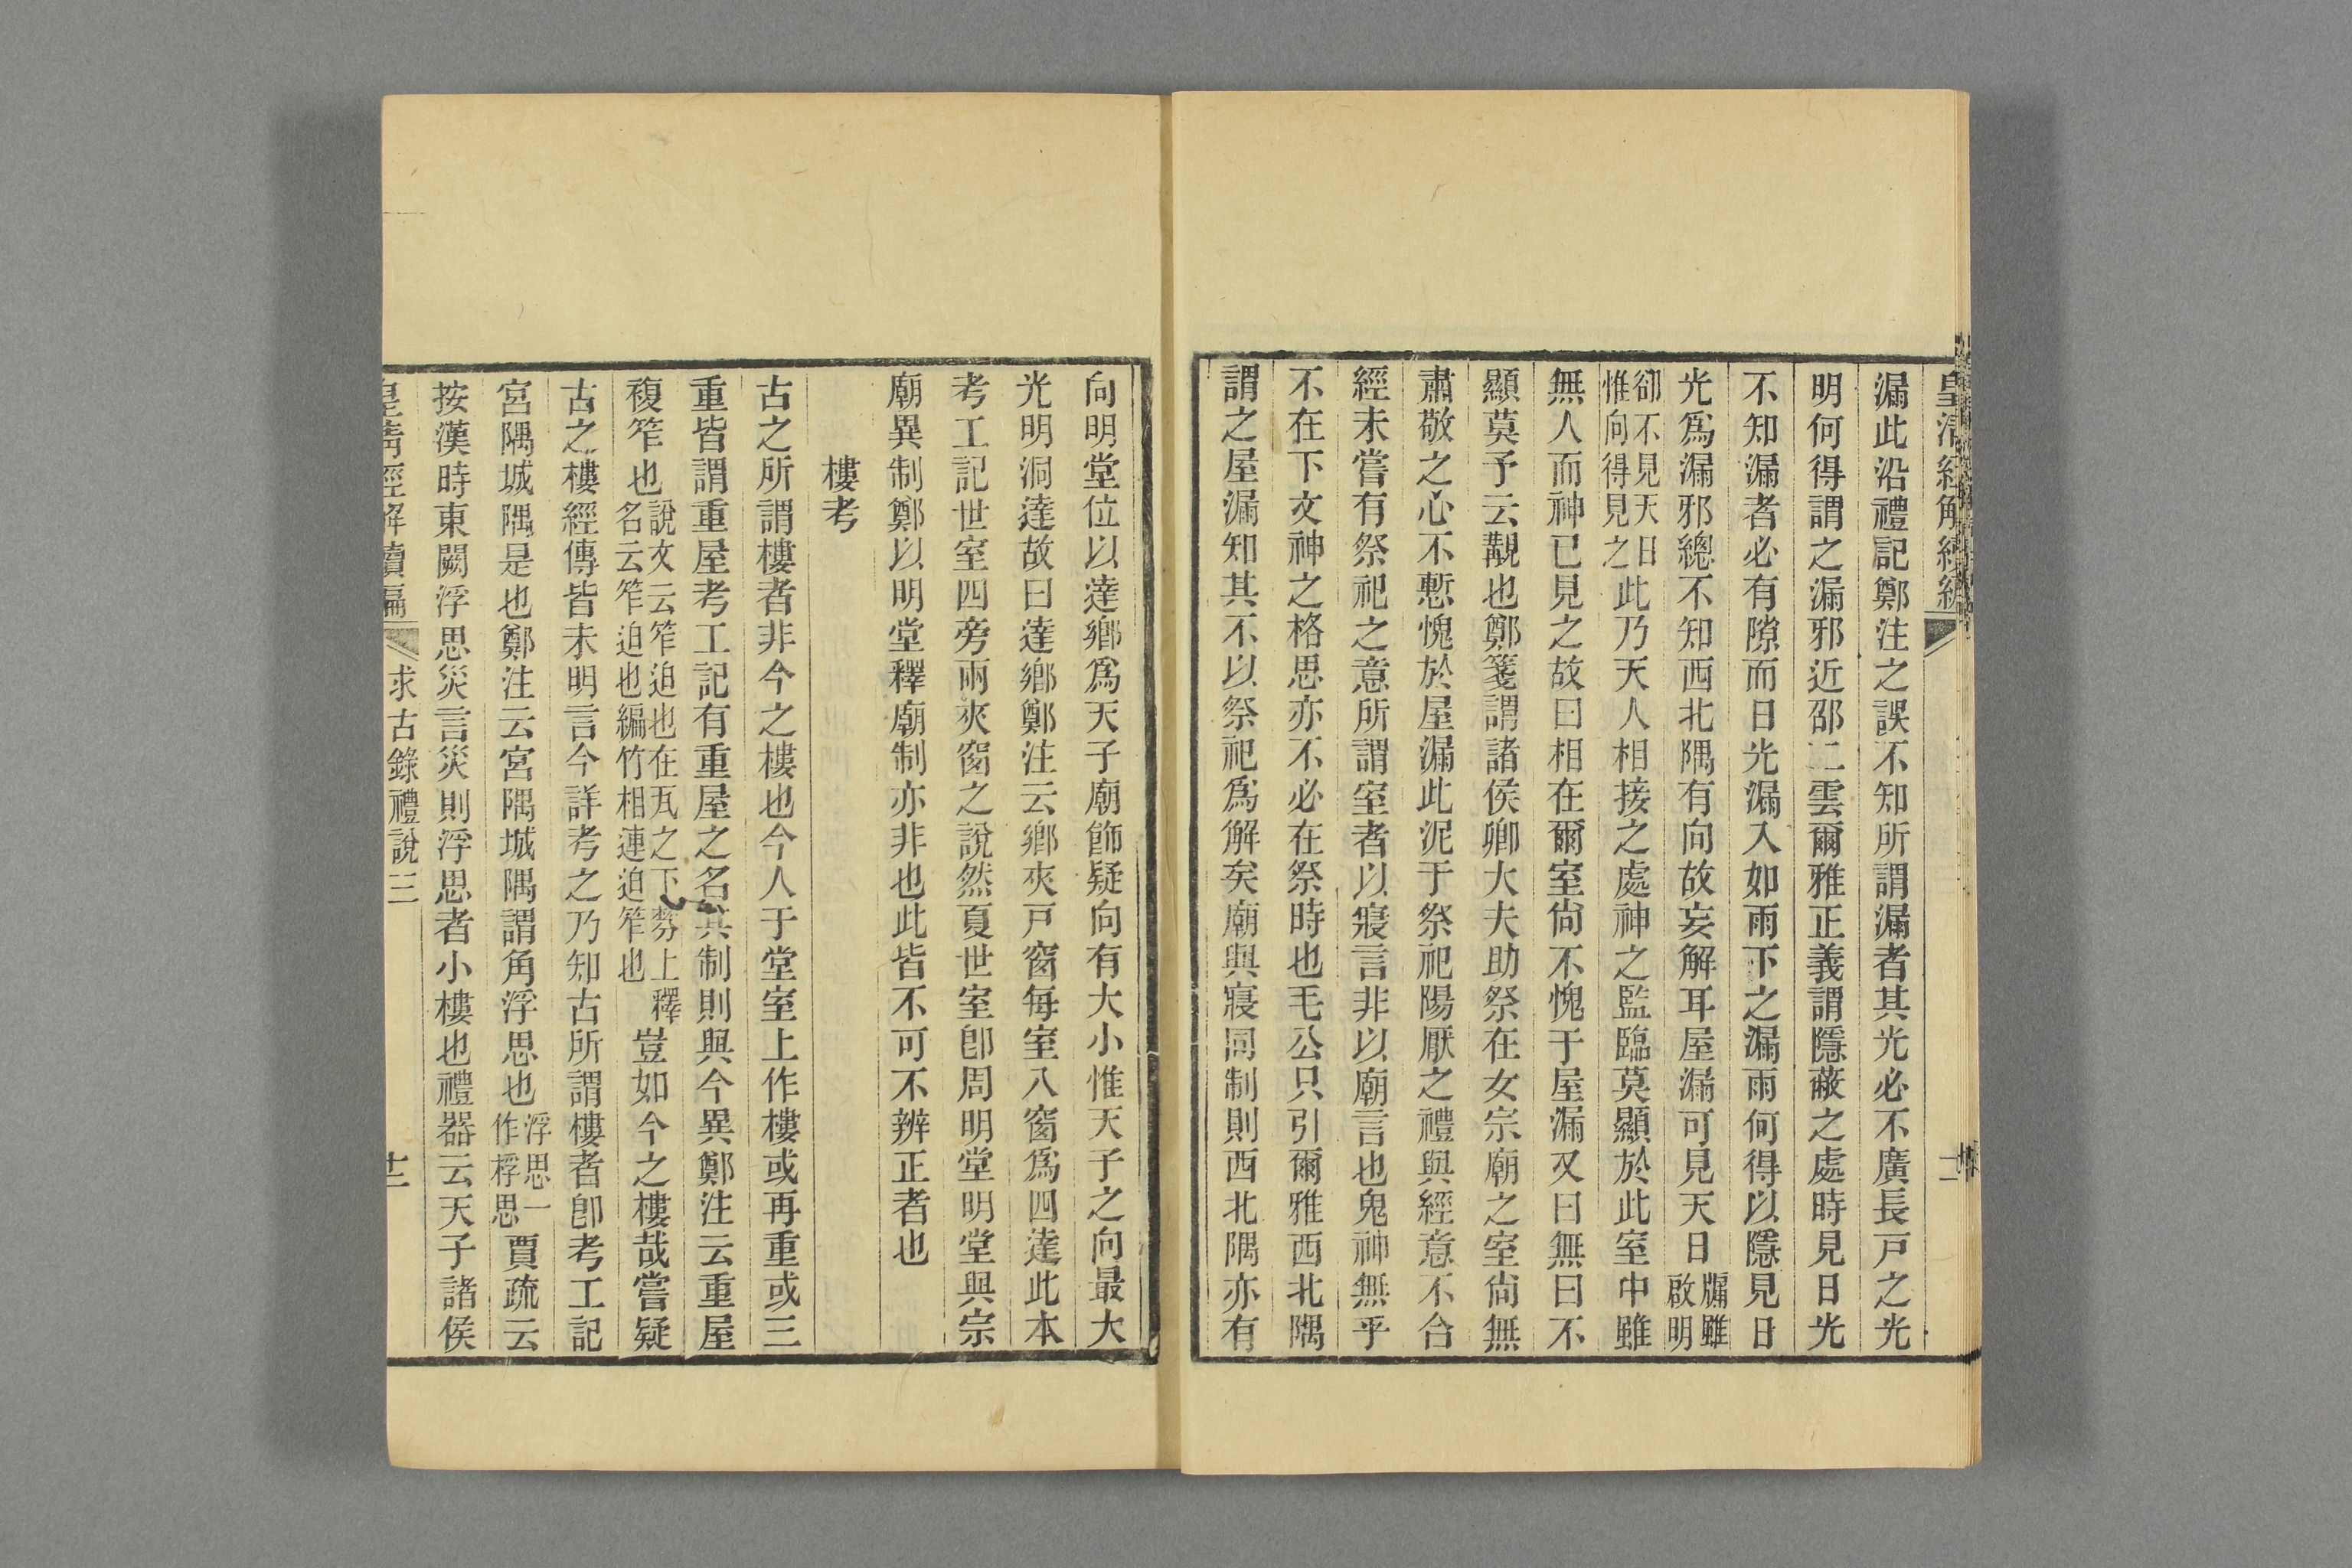 漏此沿禮記鄭注之誤不知所謂漏者其光必不廣長戸之光
明何得謂之漏邪近邵二雲爾雅正義謂隱蔽之處時見日光
不知漏者必有隙而日光漏入如雨下之漏雨何得以隱見日
光爲漏邪總不知西北隅有向故妄解耳屋漏可見天日牖雖啟明
卻不見天日惟向得見之此乃天人相接之處神之監臨莫顯於此室中雖
無人而神已見之故曰相在爾室尙不愧于屋漏又曰無曰不
顯莫予云覯也鄭箋謂諸侯卿大夫助祭在女宗廟之室尙無
肅敬之心不慙愧於屋漏此泥于祭祀陽厭之禮與經意不合
經未嘗有祭祀之意所謂室者以寢言非以廟言也鬼神無乎
不在下文神之格思亦不必在祭時也毛公只引爾雅西北隅
謂之屋漏知其不以祭祀爲解矣廟與寢同制則西北隅亦有
向明堂位以達鄉爲天子廟飾疑向有大小惟天子之向最大
光明洞達故曰達鄉鄭注云鄉夾戸窗每室八窗爲四達此本
考工記世室四旁兩夾窗之說然夏世室卽周明堂明堂與宗
廟異制鄭以明堂釋廟制亦非也此皆不可不辨正者也
樓考
古之所謂樓者非今之樓也今人于堂室上作樓或再重或三
重皆謂重屋考工記有重屋之名其制則與今異鄭注云重屋
複笮也說文云笮迫也在瓦之下棼上釋名云笮迫也編竹相連迫笮也豈如今之樓哉嘗疑
古之樓經傳皆未明言今詳考之乃知古所謂樓者卽考工記
宮隅城隅是也鄭注云宮隅城隅謂角浮思也浮思一作桴思賈疏云
按漢時東闕浮思災言災則浮思者小樓也禮器云天子諸侯
皇清經解續編 求古錄禮說三 十二